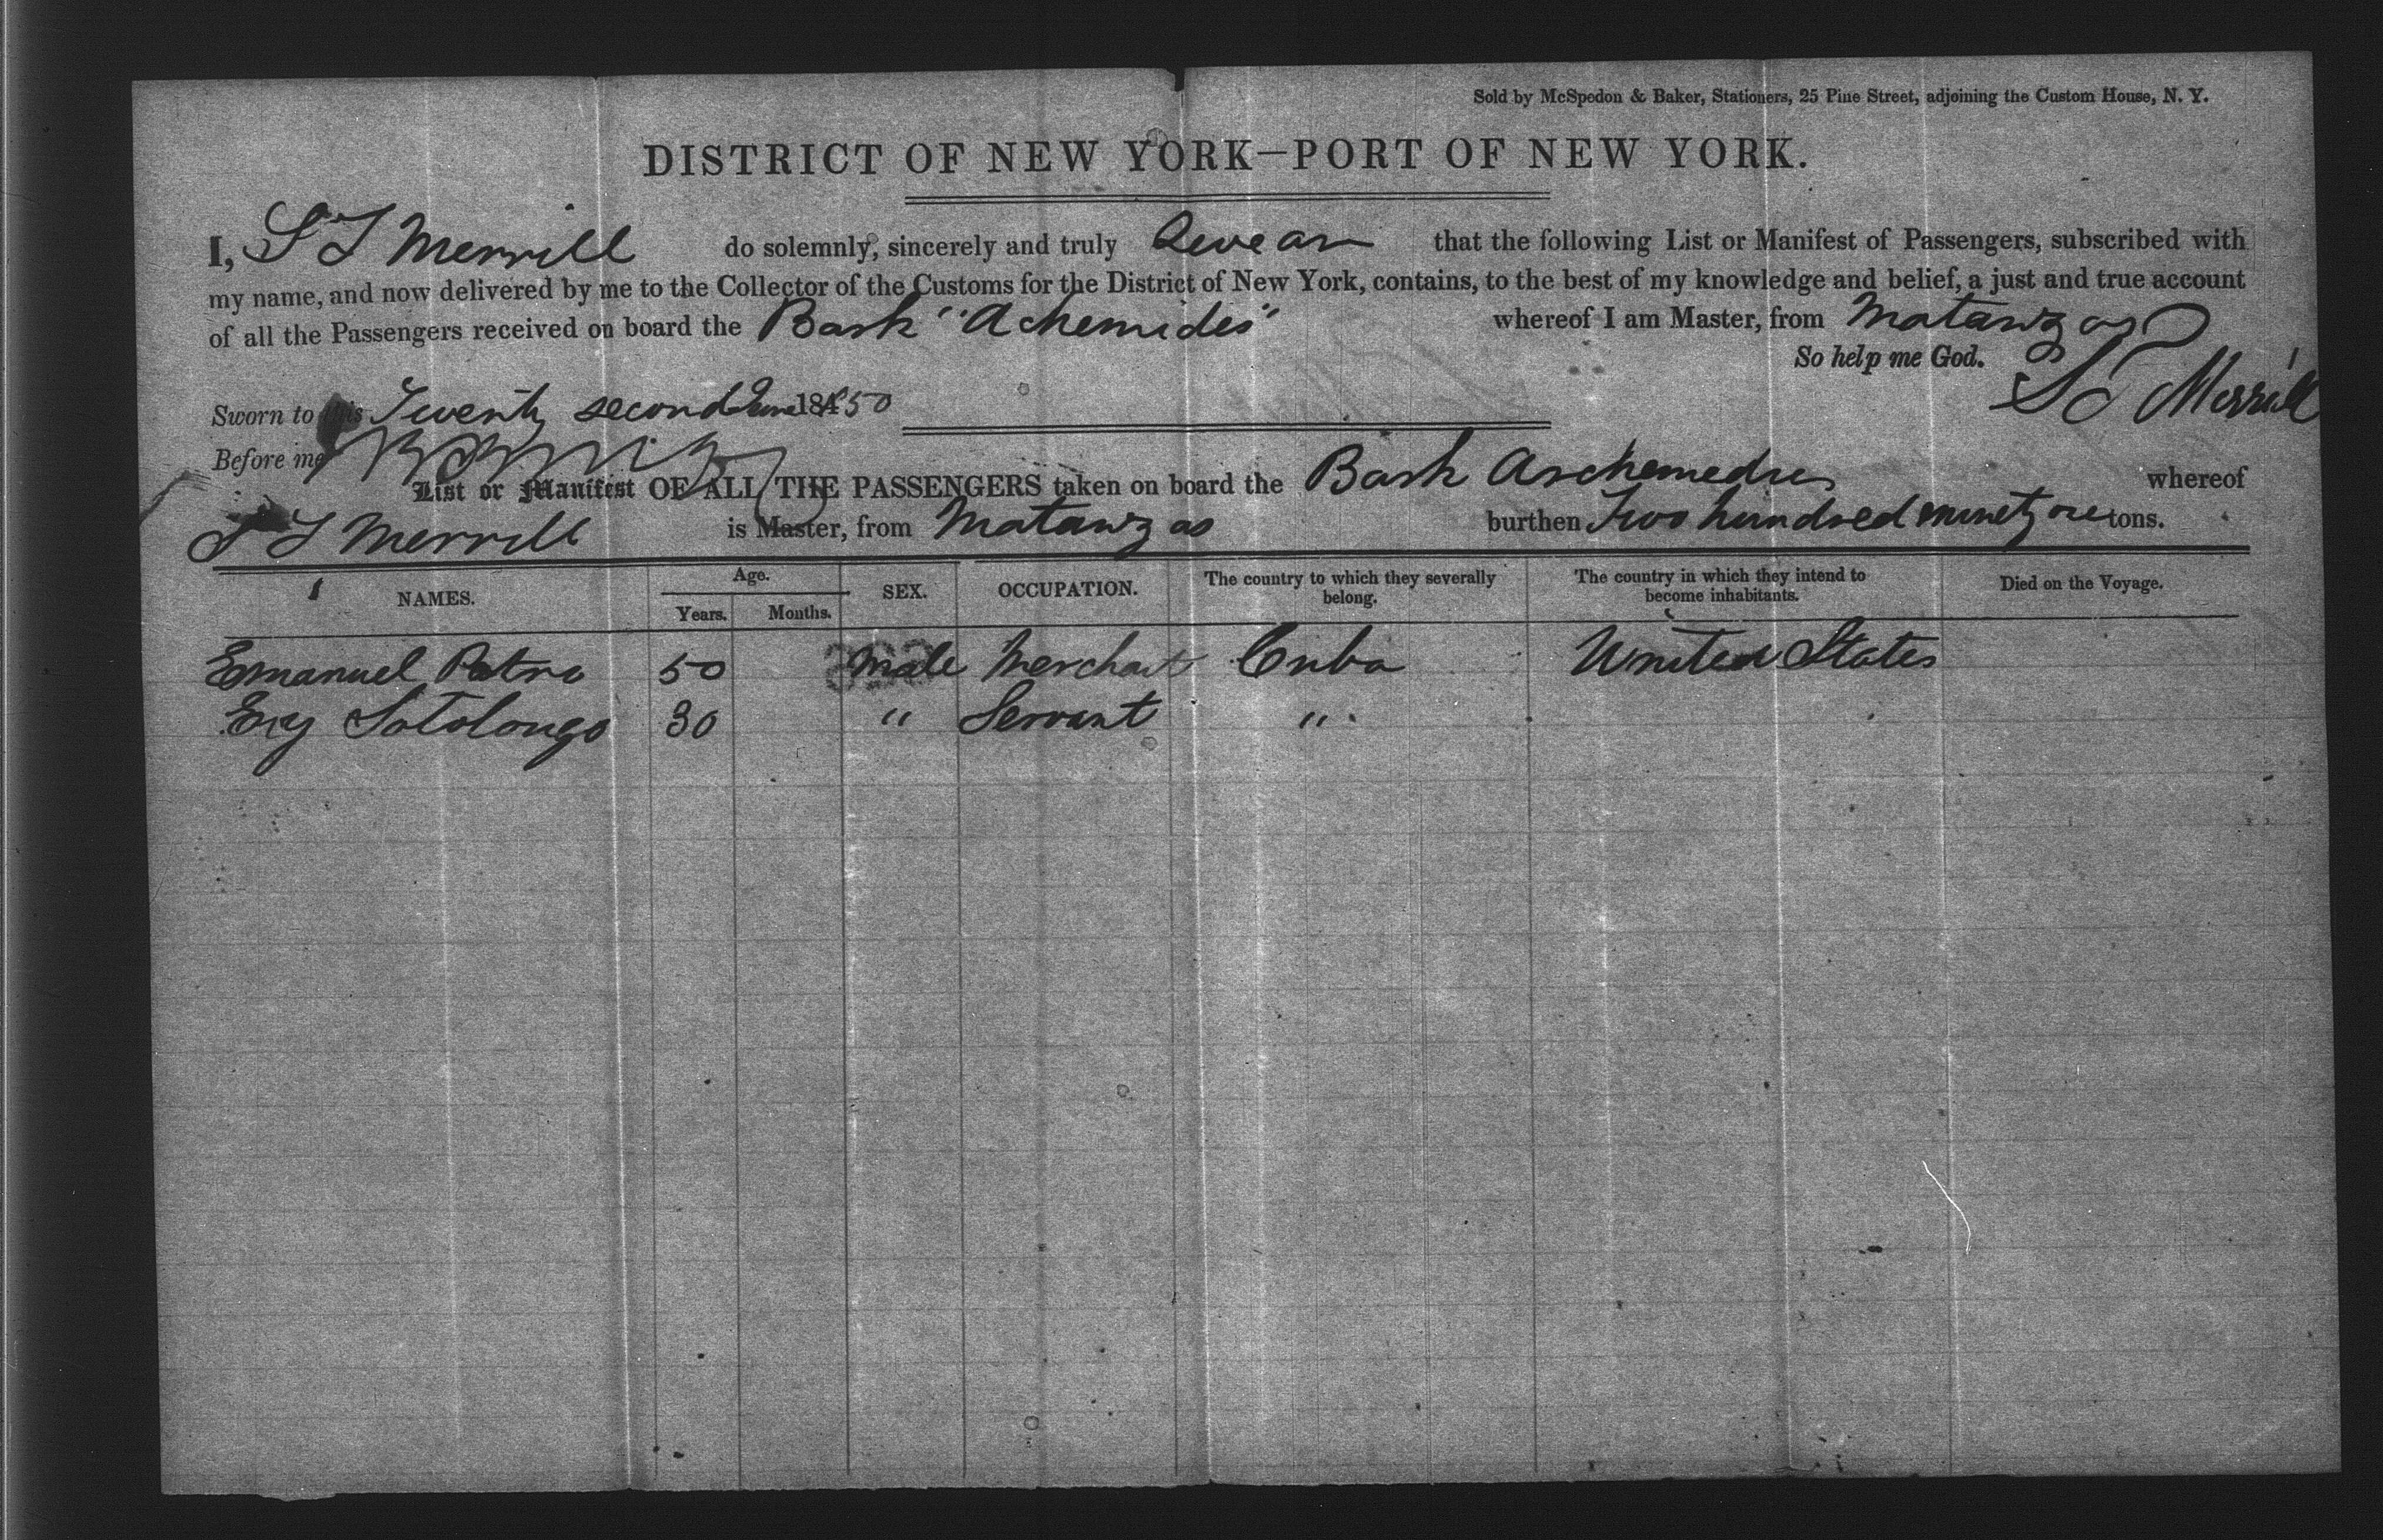 Sold by McSpedon & Baker, Stationers, 25 Pine Street, adjoining the Custom House, N. Y.
DISTRICT OF NEW YORK—PORT OF NEW YORK.
I, S T Merrill do solemnly, sincerely and truly Swear that the following List or Manifest of Passengers, subscribed with
my name, and now delivered by me to the Collector of the Customs for the District of New York, contains, to the best of my knowledge and belief, a just and true account
of all the Passengers received on board the Bark "Achemides" whereof I am Master, from Matanzas
So help me God.
Sworn to this Twenty second June 1850 Merrill
Before me
List or Manifest OF ALL THE PASSENGERS taken on board the Bark Archemedes whereof
S T Merrill is Master, from Matanzas burthen Two hundred ninety one tons.
NAMES. Age. Years. Months. SEX. OCCUPATION. The country to which they severally belong. The country in which they intend to become inhabitants. Died on the Voyage.
Emanuel 50 Male Merchant Cuba United States
Sotolongo 30 " Servant "